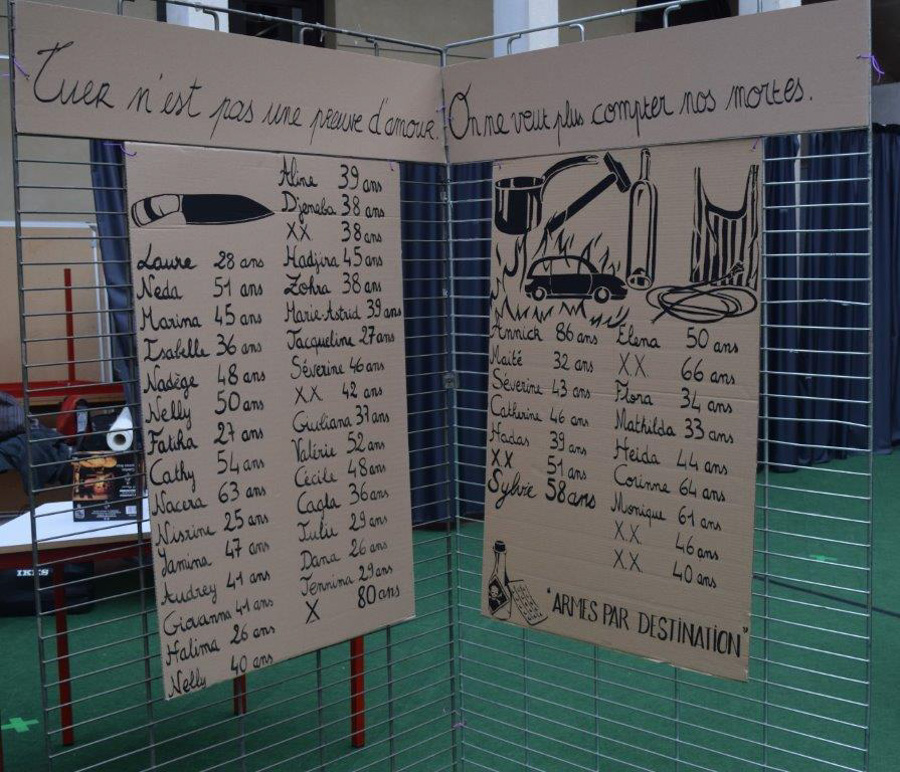 Tuer n'est pas une preuve d'amour.
On ne veut plus compter nos mortes.
Laure 28 ans
Neda 51 ans
Marina 45 ans
Isabelle 36 ans
Nadège 48 ans
Nelly 50 ans
Fatiha 27 ans
Cathy 54 ans
Nacera 63 ans
Nisrine 25 ans
Yamina 47 ans
Audrey 41 ans
Giovanna 41 ans
Halima 26 ans
Nelly 40 ans
Aline 39 ans
Djeneba 38 ans
XX 38 ans
Hadjira 45 ans
Zohra 38 ans
Marie-Astrid 39 ans
Jacqueline 27 ans
Séverine 46 ans
XX 42 ans
Guiliana 37 ans
Valérie 52 ans
Cécile 48 ans
Cagla 36 ans
Julie 29 ans
Dana 26 ans
Jennina 29 ans
X 80 ans
Annick 86 ans
Maité 32 ans
Séverine 43 ans
Catherine 46 ans
Hadas 39 ans
XX 51 ans
Sylvie 58 ans
Elena 50 ans
XX 66 ans
Flora 34 ans
Mathilda 33 ans
Heida 44 ans
Corinne 64 ans
Monique 61 ans
XX 46 ans
XX 40 ans
"ARMES PAR DESTINATION"
IKKS